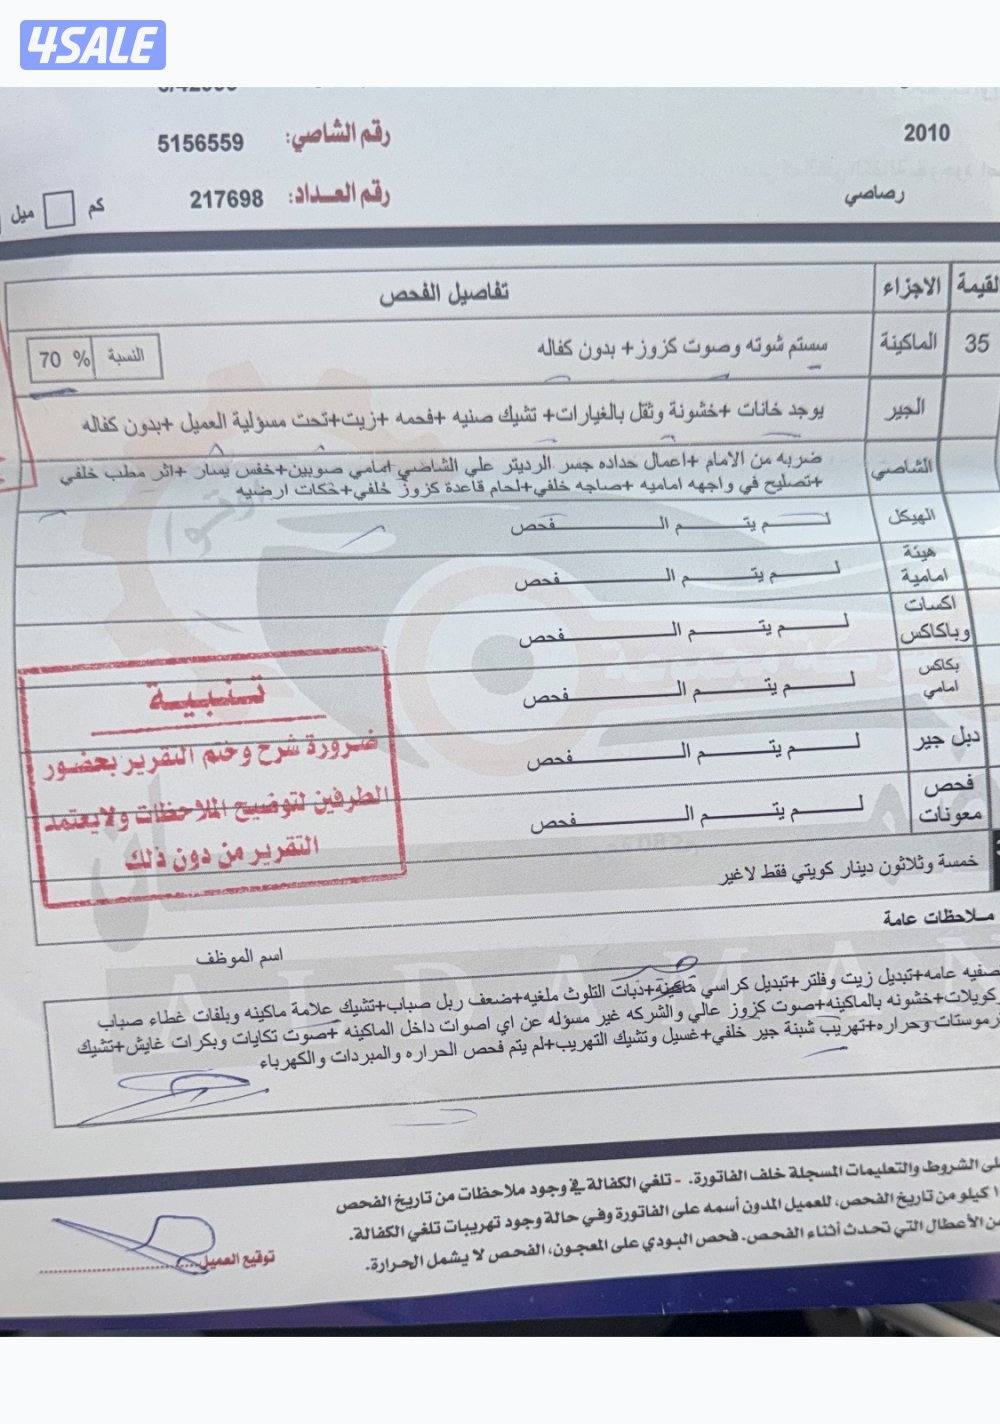 4SALE
2010
رقم الشاصي: 5156559
رصاصي
رقم العداد: 217698 كم ميل
القيمة الاجزاء تفاصيل الفحص
35 الماكينة سستم شوته وصوت كزوز+ بدون كفاله النسبة % 70
الجير يوجد خانات +خشونة وثقل بالغيارات+ تشيك صنيه +فحمه +زيت+تحت مسؤلية العميل +بدون كفاله
الشاصي ضربه من الامام +اعمال حداده جسر الرديتر علي الشاصي امامي صوبين+خفس يسار +اثر مطب خلفي
+تصليح في واجهه اماميه +صاجه خلفي+لحام قاعدة كزوز خلفي+حكات ارضيه
الهيكل لـــم يتـــم الـــفحص
هيئة امامية لـــم يتـــم الـــفحص
اكسات وباكاكس لـــم يتـــم الـــفحص
بكاكس امامي لـــم يتـــم الـــفحص
دبل جير لـــم يتـــم الـــفحص
فحص معونات لـــم يتـــم الـــفحص
تـنبيـه
ضرورة شرح وختم التقرير بحضور
الطرفين لتوضيح الملاحظات ولايعتمد
التقرير من دون ذلك
خمسة وثلاثون دينار كويتي فقط لاغير
ملاحظات عامة
اسم الموظف
تصفيه عامه+تبديل زيت وفلتر+تبديل كراسي ماكينة+دبات التلوث ملغيه+ضعف ربل صباب+تشيك علامة ماكينه وبلفات غطاء صباب
كويلات+خشونه بالماكينه+صوت كزوز عالي والشركه غير مسؤله عن اي اصوات داخل الماكينه +صوت تكايات وبكرات غايش+تشيك
ثرموستات وحراره+تهريب شبنة جير خلفي+غسيل وتشيك التهريب+لم يتم فحص الحراره والمبردات والكهرباء
على الشروط والتعليمات المسجلة خلف الفاتورة. - تلغي الكفالة في وجود ملاحظات من تاريخ الفحص
كيلو من تاريخ الفحص، للعميل المدون أسمه على الفاتورة وفي حالة وجود تهريبات تلغي الكفالة.
من الأعطال التي تحدث أثناء الفحص. فحص البودي على المعجون، الفحص لا يشمل الحرارة.
توقيع العميل